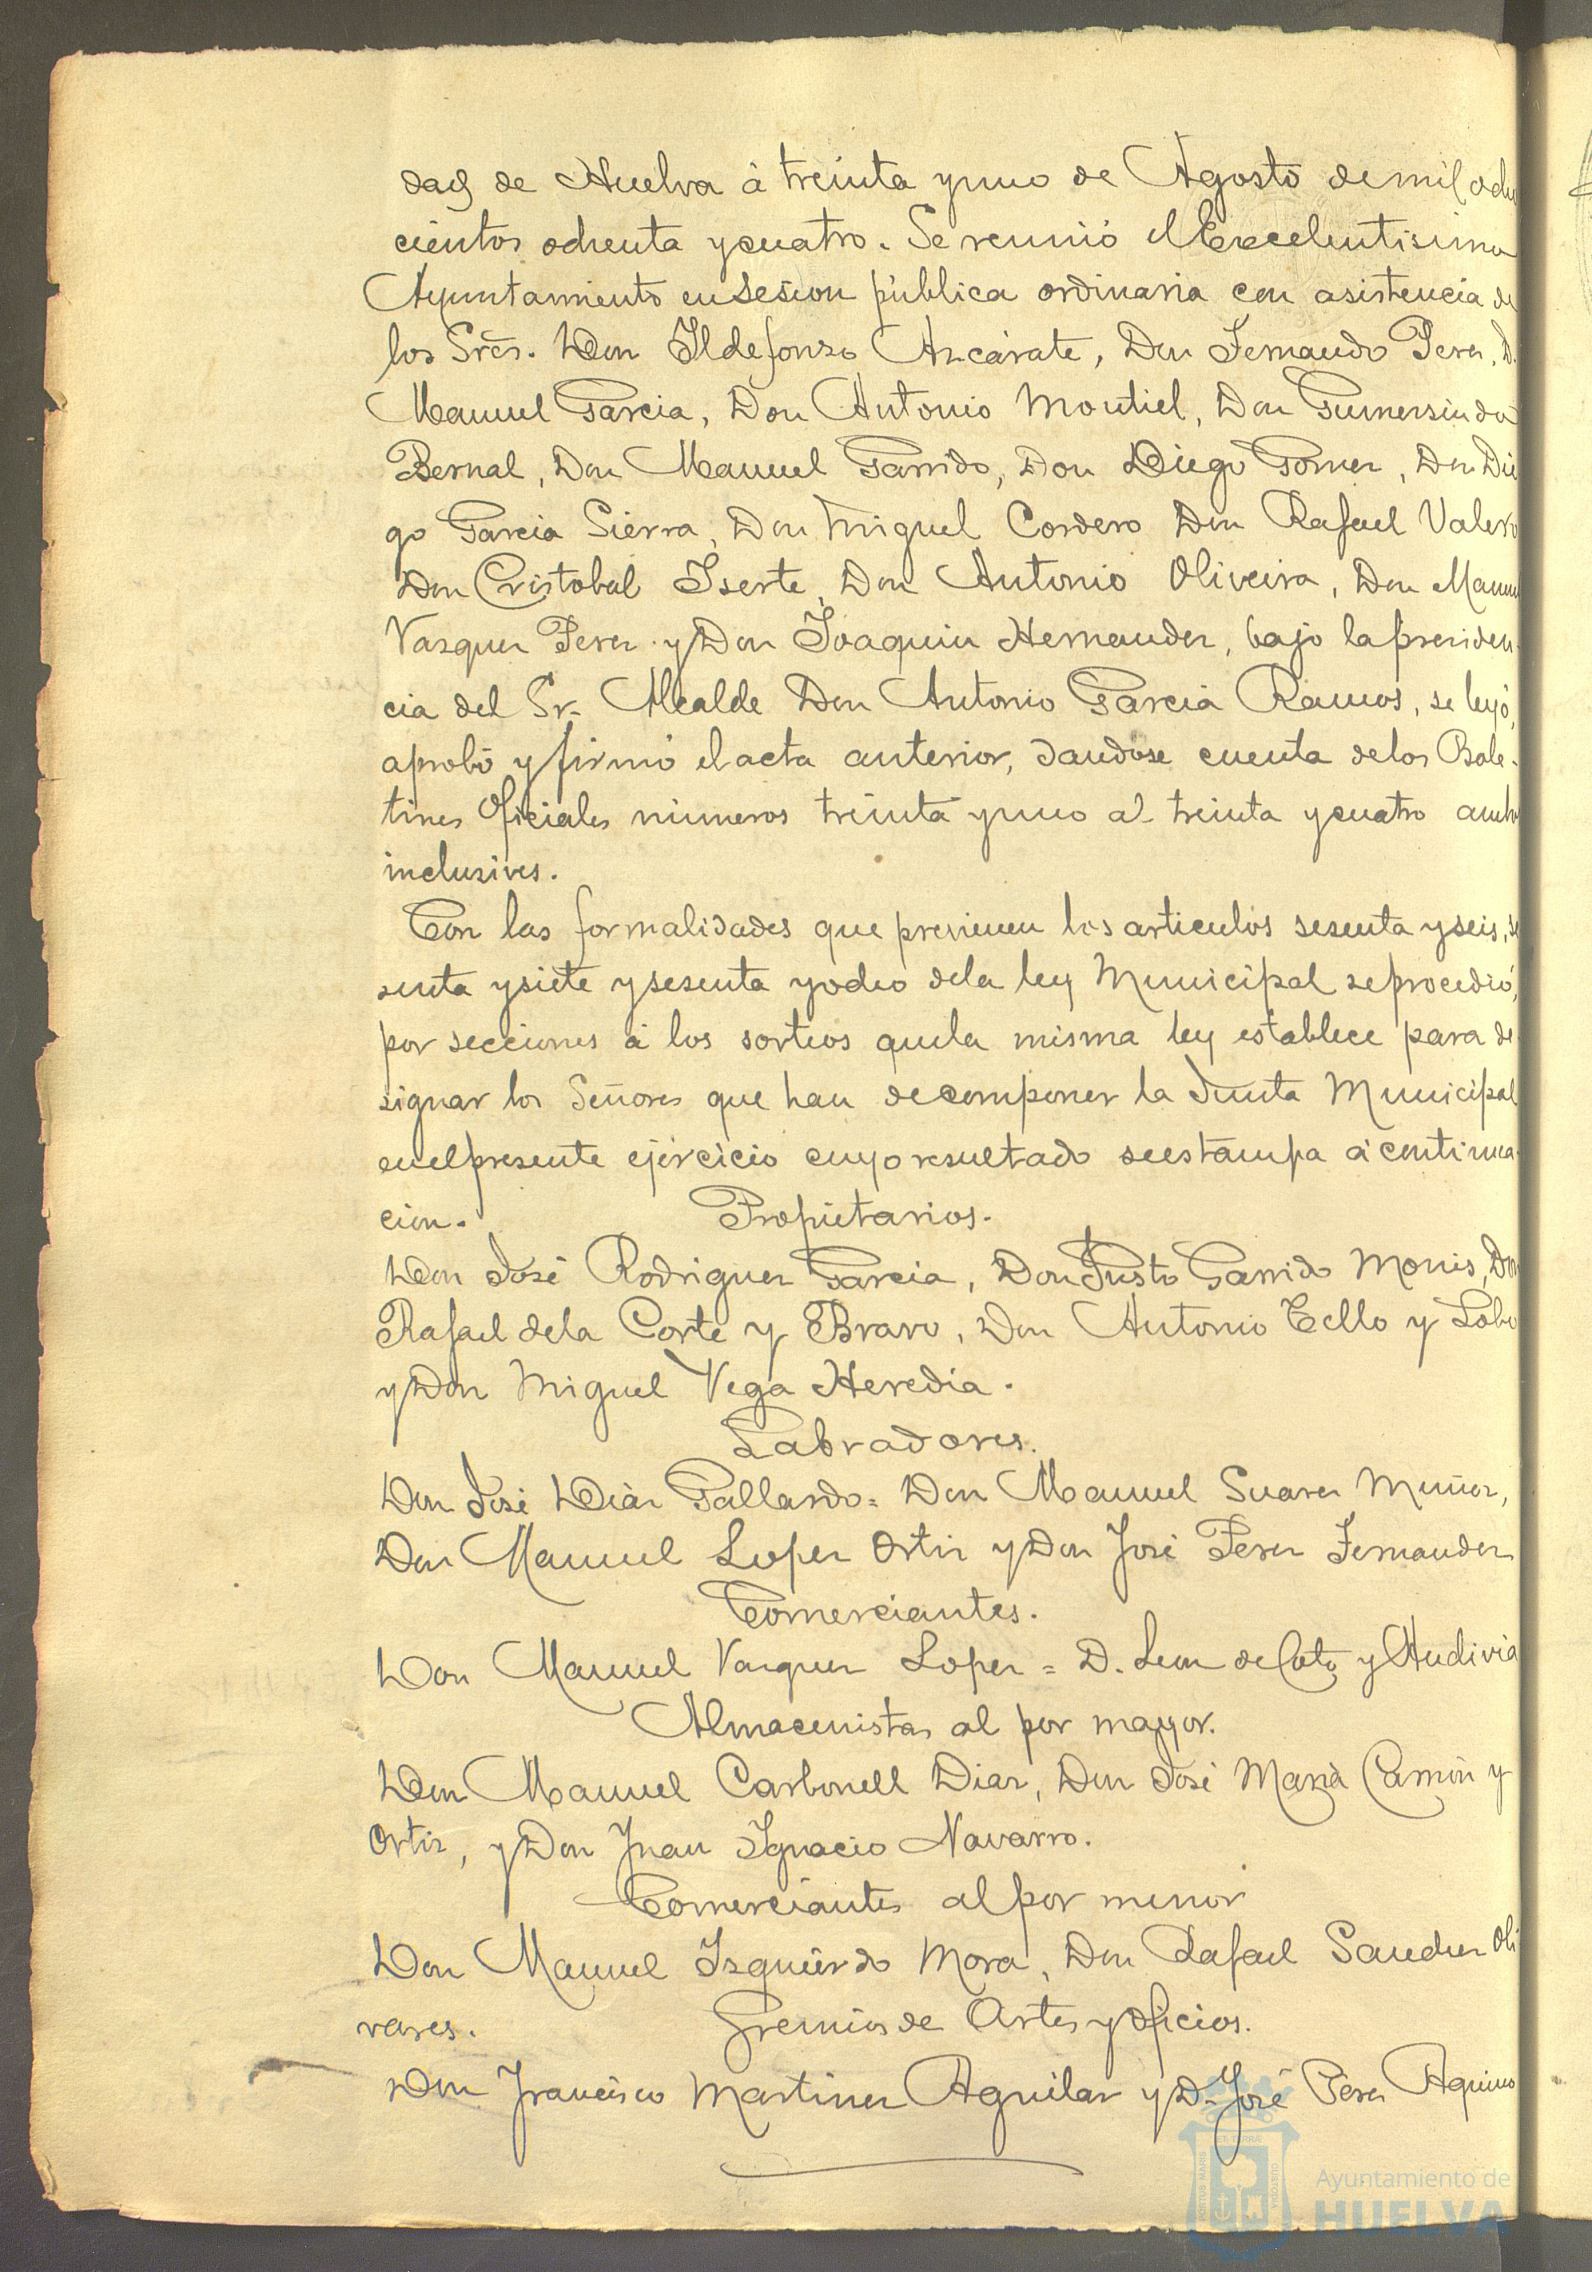 dad de Huelva á treinta y uno de Agosto de mil ocho
cientos ochenta y cuatro. Se reunió el Excelentisimo
Ayuntamiento en sesion pública ordinaria con asistencia de
los Sres. Don Ildefonso Azcárate, Don Fernando Perez, D.
Manuel Garcia, Don Antonio Montiel, Don Gumersindo
Bernal, Don Manuel Garrido, Don Diego Gomez, Don Die
go Garcia Sierra, Don Miguel Cordero Don Rafael Valero
Don Cristobal Iserte, Don Antonio Oliveira, Don Manuel
Vazquez Perez y Don Joaquin Hernandez, bajo la presiden-
cia del Sr. Alcalde Don Antonio Garcia Ramos, se leyó,
aprobó y firmó el acta anterior, dandose cuenta de los Bole-
tines Oficiales números treinta y uno al treinta y cuatro ambos
inclusives.
Con las formalidades que previenen los articulos sesenta y seis, se
senta y siete y sesenta y ocho de la ley Municipal se procedió,
por secciones á los sorteos que la misma ley establece para de
signar los Señores que han de componer la Junta Municipal
en el presente ejercicio cuyo resultado se estampa á continua-
cion. Propietarios.
Don José Rodriguez Garcia, Don Justo Garrido Monis, Don
Rafael de la Corte y Bravo, Don Antonio Tello y Lobo
y Don Miguel Vega Heredia.
Labradores.
Don José Diaz Gallardo = Don Manuel Suarez Muñoz,
Don Manuel Lopez Ortiz y Don José Perez Fernandez
Comerciantes.
Don Manuel Vazquez Lopez = D. Leon de Coto y Andivia
Almacenistas al por mayor.
Don Manuel Carbonell Diaz, Don José Maria Carrión y
Ortiz, y Don Juan Ignacio Navarro.
Comerciantes al por menor
Don Manuel Izquierdo Mora, Don Rafael Sanchez Oli
vares. Gremios de Artes y oficios.
Don Francisco Martinez Aguilar y D. José Perez Aquino
PORTUS MARIS
ET TERRÆ
CUSTODIA
Ayuntamiento de
HUELVA